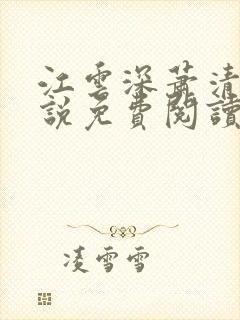 江雲深蕭清
說免費閱讀
凌雪雪